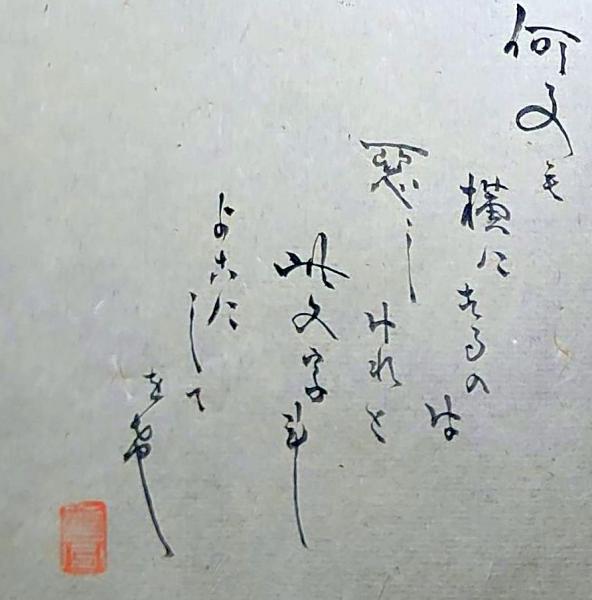 何事も
横にするのは
悪しけれと
此文字斗
よこにして
をけ